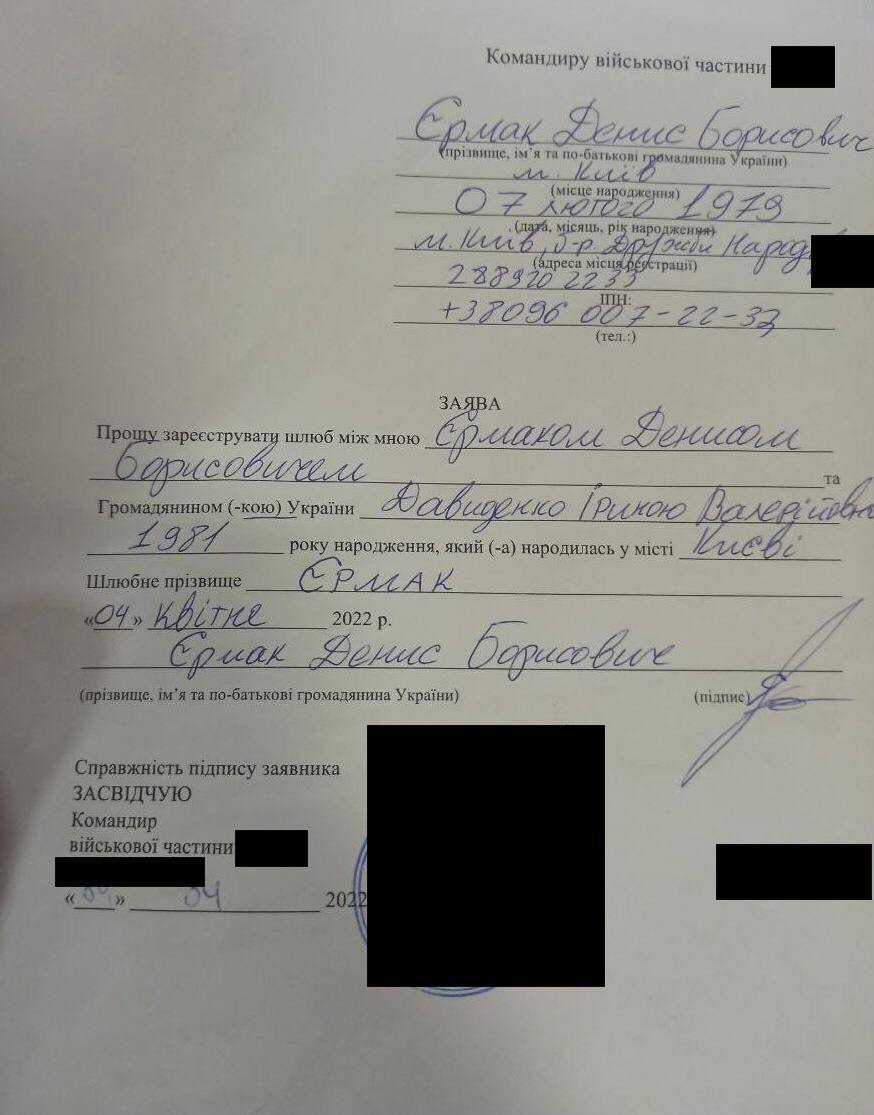 Командиру військової частини
Єрмак Денис Борисович
(прізвище, ім’я та по-батькові громадянина України)
м. Київ
(місце народження)
07 лютого 1979
(дата, місяць, рік народження)
м. Київ, б-р. Дружби Народ
(адреса місця реєстрації)
288920 2233
ІПН:
+38096 007-22-33
(тел.:)
ЗАЯВА
Прошу зареєструвати шлюб між мною Єрмаком Денисом
Борисовичем та
Громадянином (-кою) України Давиденко Іриною Валеріївн
1981 року народження, який (-а) народилась у місті Києві
Шлюбне прізвище ЄРМАК
«04» квітне 2022 р.
Єрмак Денис Борисович
(прізвище, ім’я та по-батькові громадянина України) (підпис)
Справжність підпису заявника
ЗАСВІДЧУЮ
Командир
військової частини
«04» 04 2022